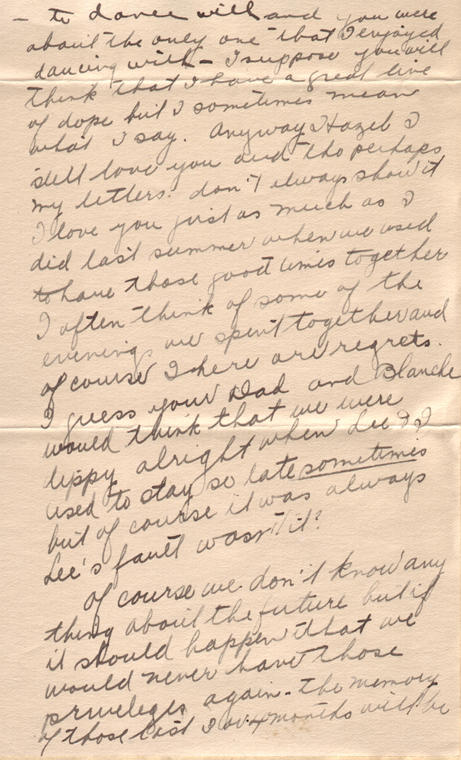 - to dance with and you were
about the only one that I enjoyed
dancing with - I suppose you will
think that I have a great line
of dope but I sometimes mean
what I say. Anyway Hazel I
still love you and tho perhaps
my letters don't always show it
I love you just as much as I
did last summer when we used
to have those good times together
I often think of some of the
evenings we spent together and
of course there are regrets.
I guess your Dad and Blanche
would think that we were
lippy alright when Lee & I
used to stay so late sometimes
but of course it was always
Lee's fault wasn't it?
Of course we don't know any
thing about the future but if
it should happen that we
would never have those
privileges again - the memory
of those last 3 or 4 months will be